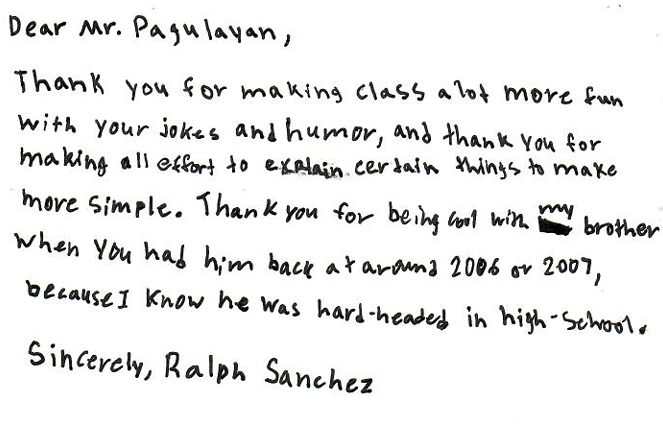 Dear Mr. Pagulayan,
Thank you for making class alot more fun
with your jokes and humor, and thank you for
making all effort to explain certain things to make
more simple. Thank you for being cool with my brother
when you had him back at around 2006 or 2007,
because I know he was hard-headed in high-school.
Sincerely, Ralph Sanchez